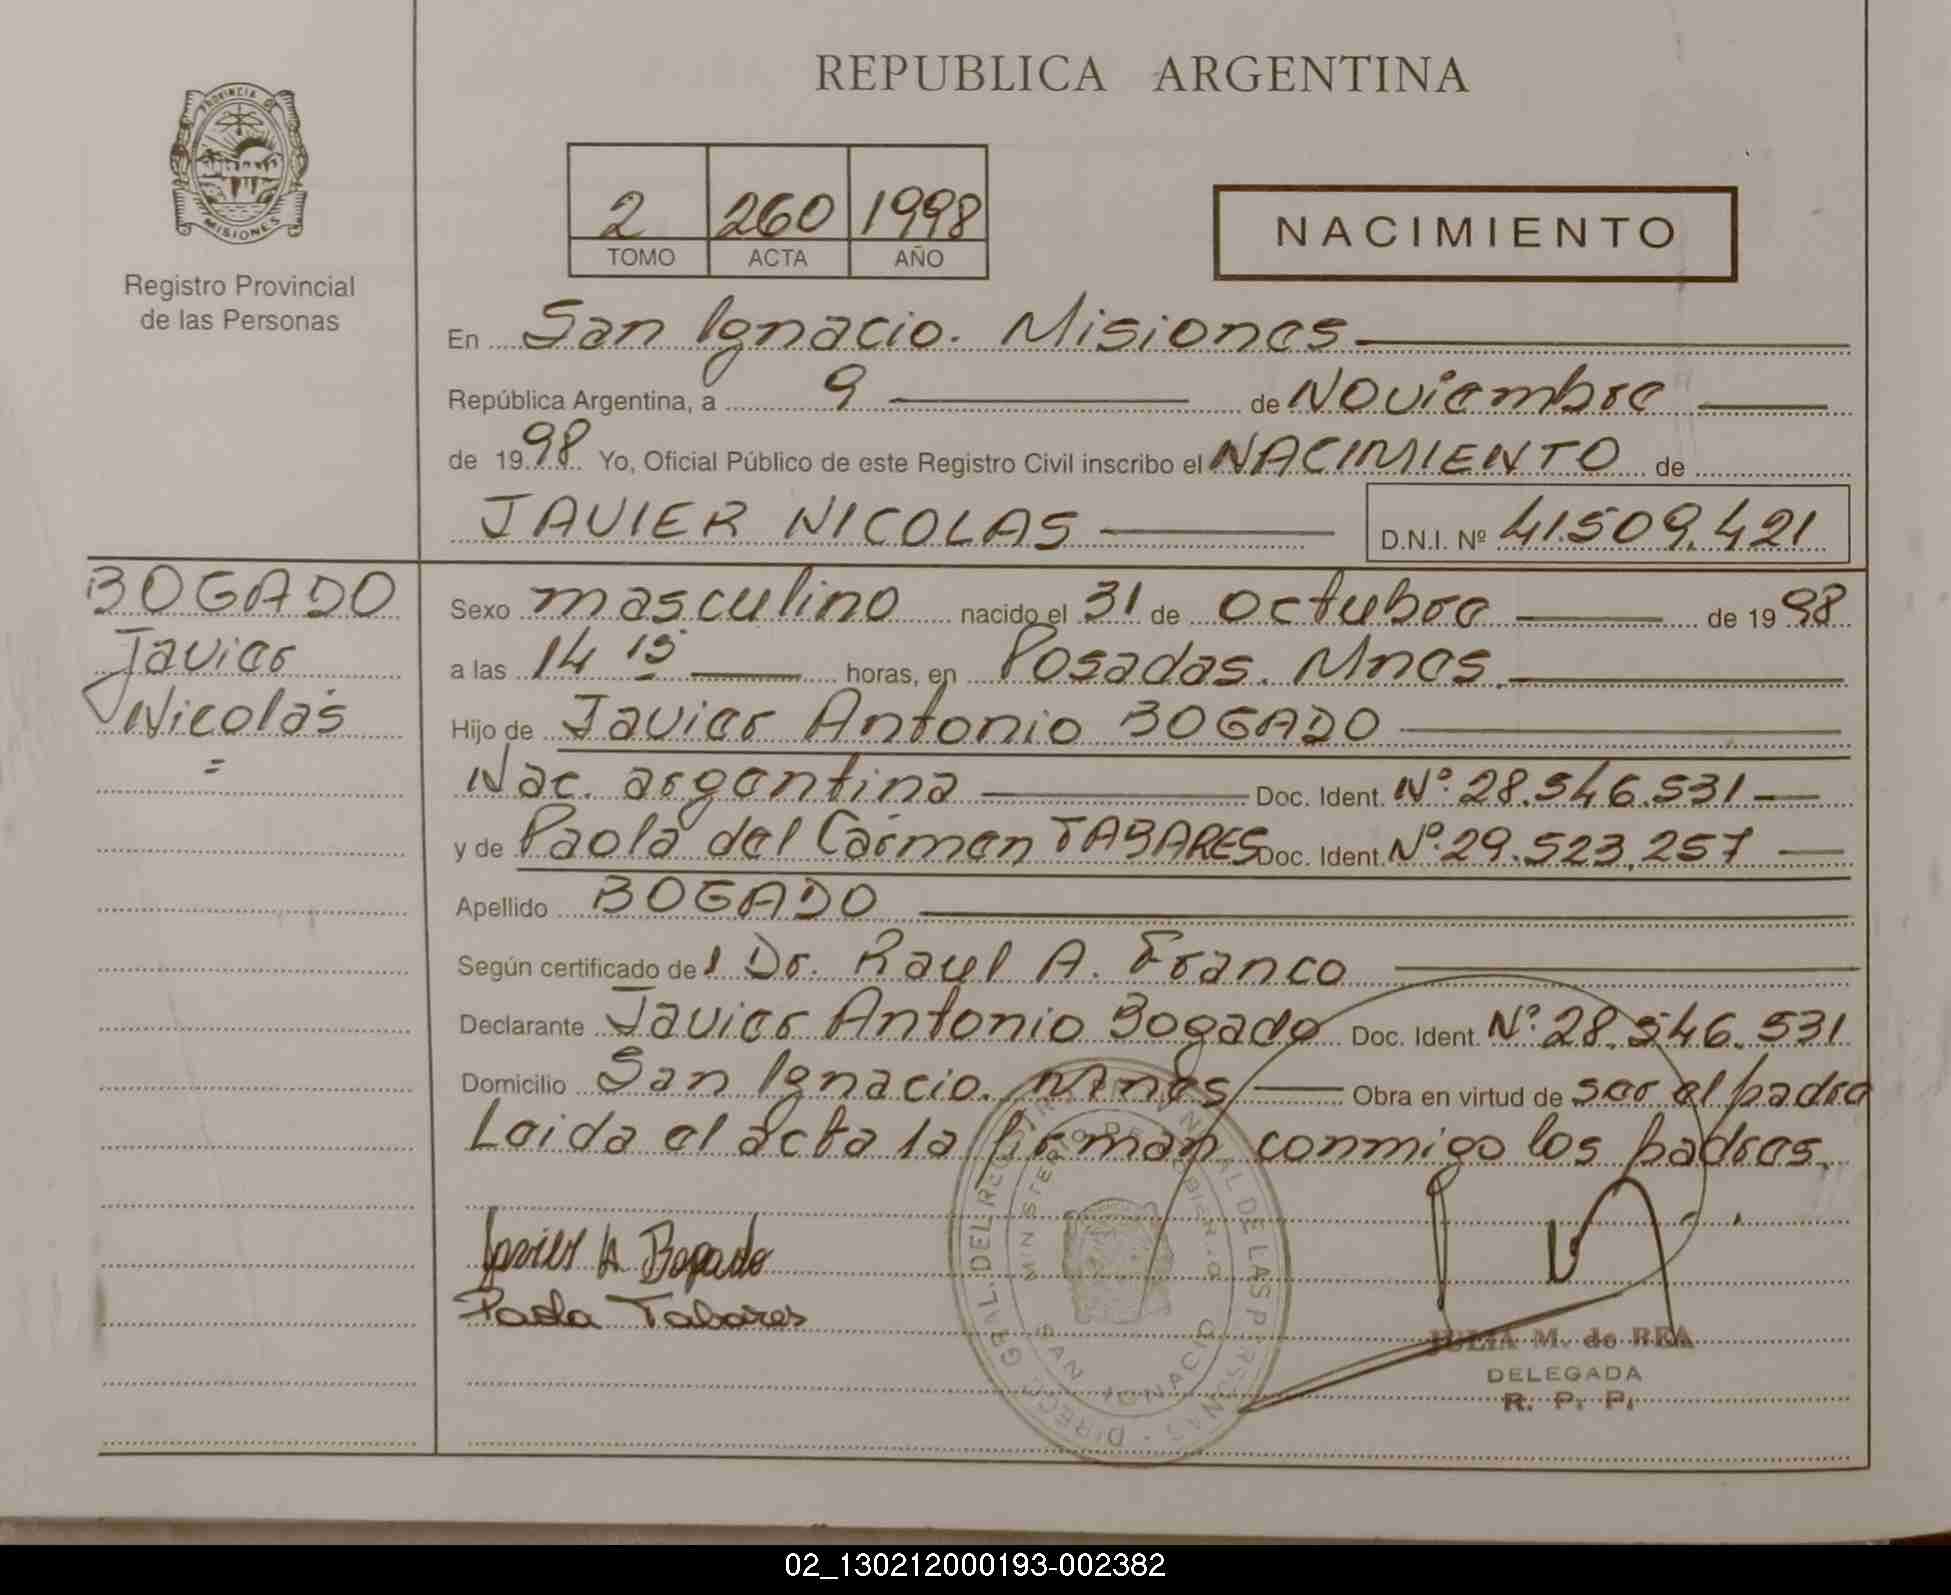 REPUBLICA ARGENTINA
PROVINCIA DE MISIONES
Registro Provincial
de las Personas
2 260 1998
TOMO ACTA AÑO
NACIMIENTO
En San Ignacio. Misiones
República Argentina, a 9 de Noviembre
de 1998 Yo, Oficial Público de este Registro Civil inscribo el NACIMIENTO de
JAVIER NICOLAS D.N.I. Nº 41.509.421
BOGADO
Javier
Nicolás
=
Sexo masculino nacido el 31 de octubre de 1998
a las 14 15 horas, en Posadas. Mnes.
Hijo de Javier Antonio BOGADO
Nac. argentina Doc. Ident. Nº 28.546.531
y de Paola del Carmen TABARES Doc. Ident. Nº 29.523.257
Apellido BOGADO
Según certificado del Dr. Raul A. Franco
Declarante Javier Antonio Bogado Doc. Ident. Nº 28.546.531
Domicilio San Ignacio. Mnes Obra en virtud de ser el padre
Leida el acta la firman conmigo los padres.
Javier A Bogado
Paola Tabares
DIREC. GRAL. DEL REG. PROVINCIAL DE LAS PERSONAS
MINISTERIO DE GOBIERNO
SAN IGNACIO
JULIA M. de REA
DELEGADA
R. P. P.
02_130212000193-002382